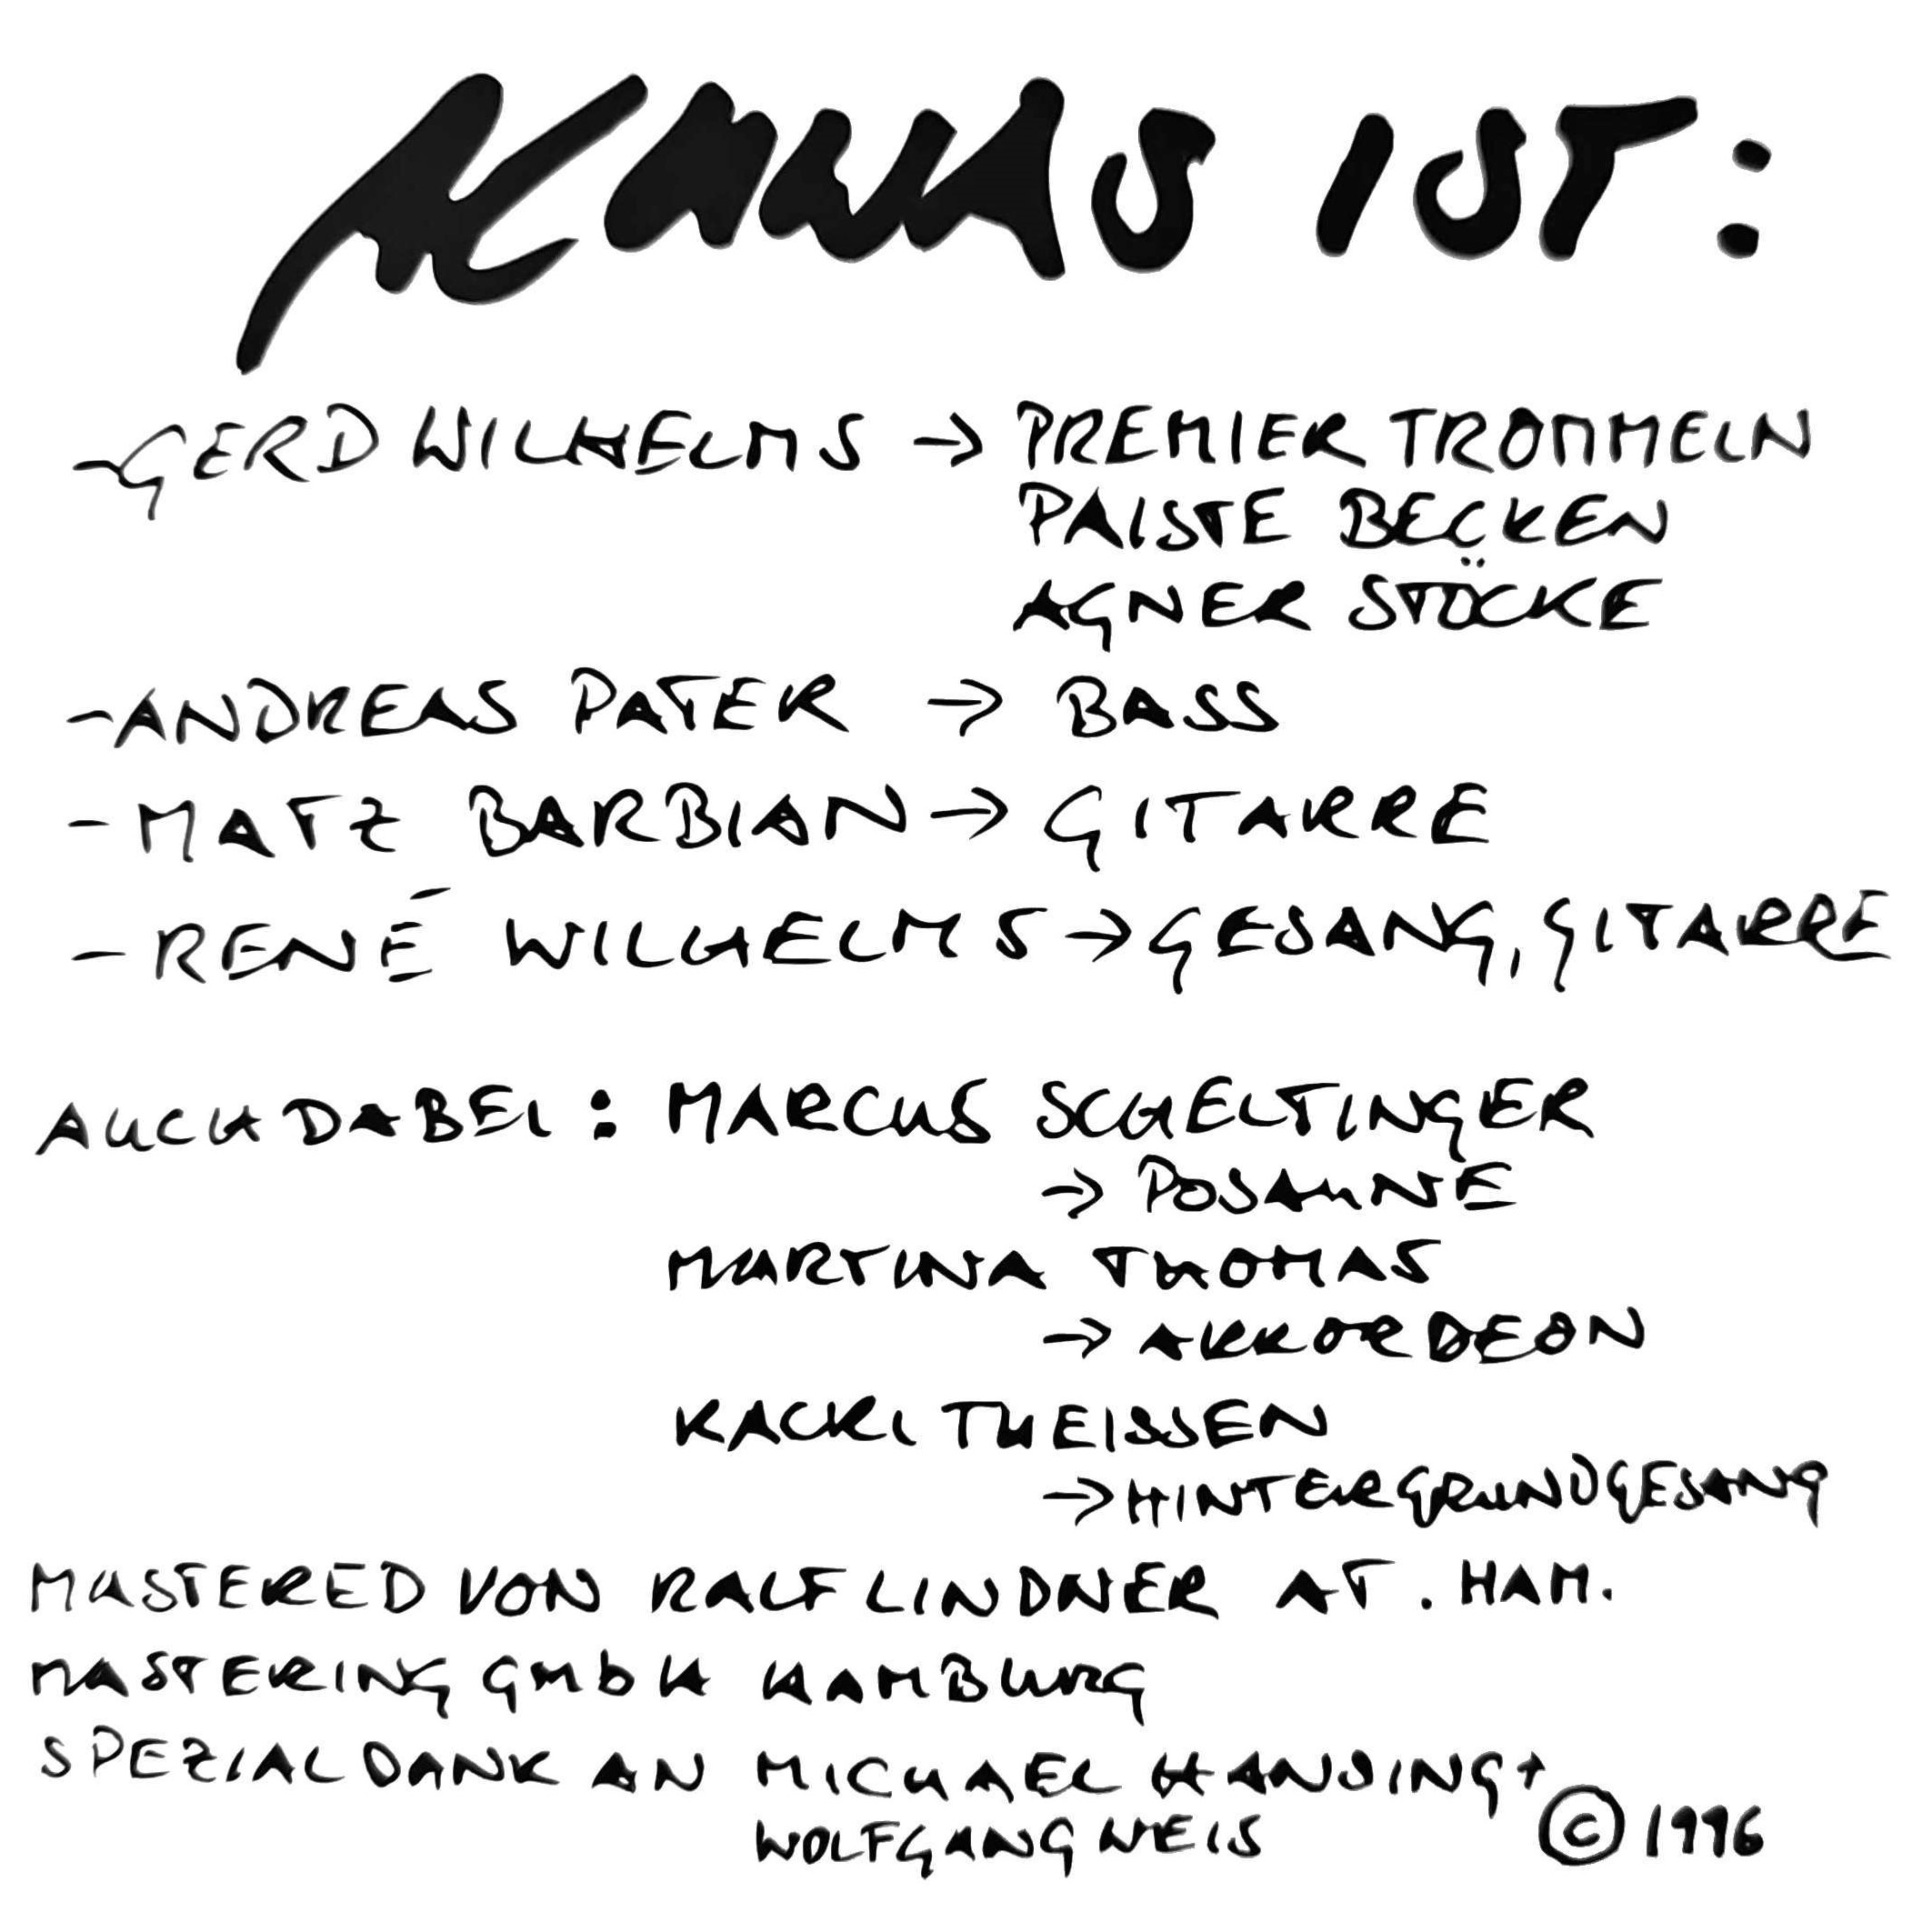 IST:
-GERD WILHELMS → PREMIER TROMMELN
PAISTE BECKEN
AGNER STÖCKE
-ANDREAS PATER → BASS
-MATZ BARBIAN → GITARRE
-RENÉ WILHELMS → GESANG, GITARRE
AUCH DABEI: MARCUS SCHELTINGER
→ POSAUNE
MARTINA THOMAS
→ AKKORDEON
KACKI THEISSEN
→ HINTERGRUNDGESANG
MASTERED VON RALF LINDNER AT . HAM.
MASTERING GmbH HAMBURG
SPEZIAL DANK AN MICHAEL HANSING +
WOLFGANG WEIS © 1996